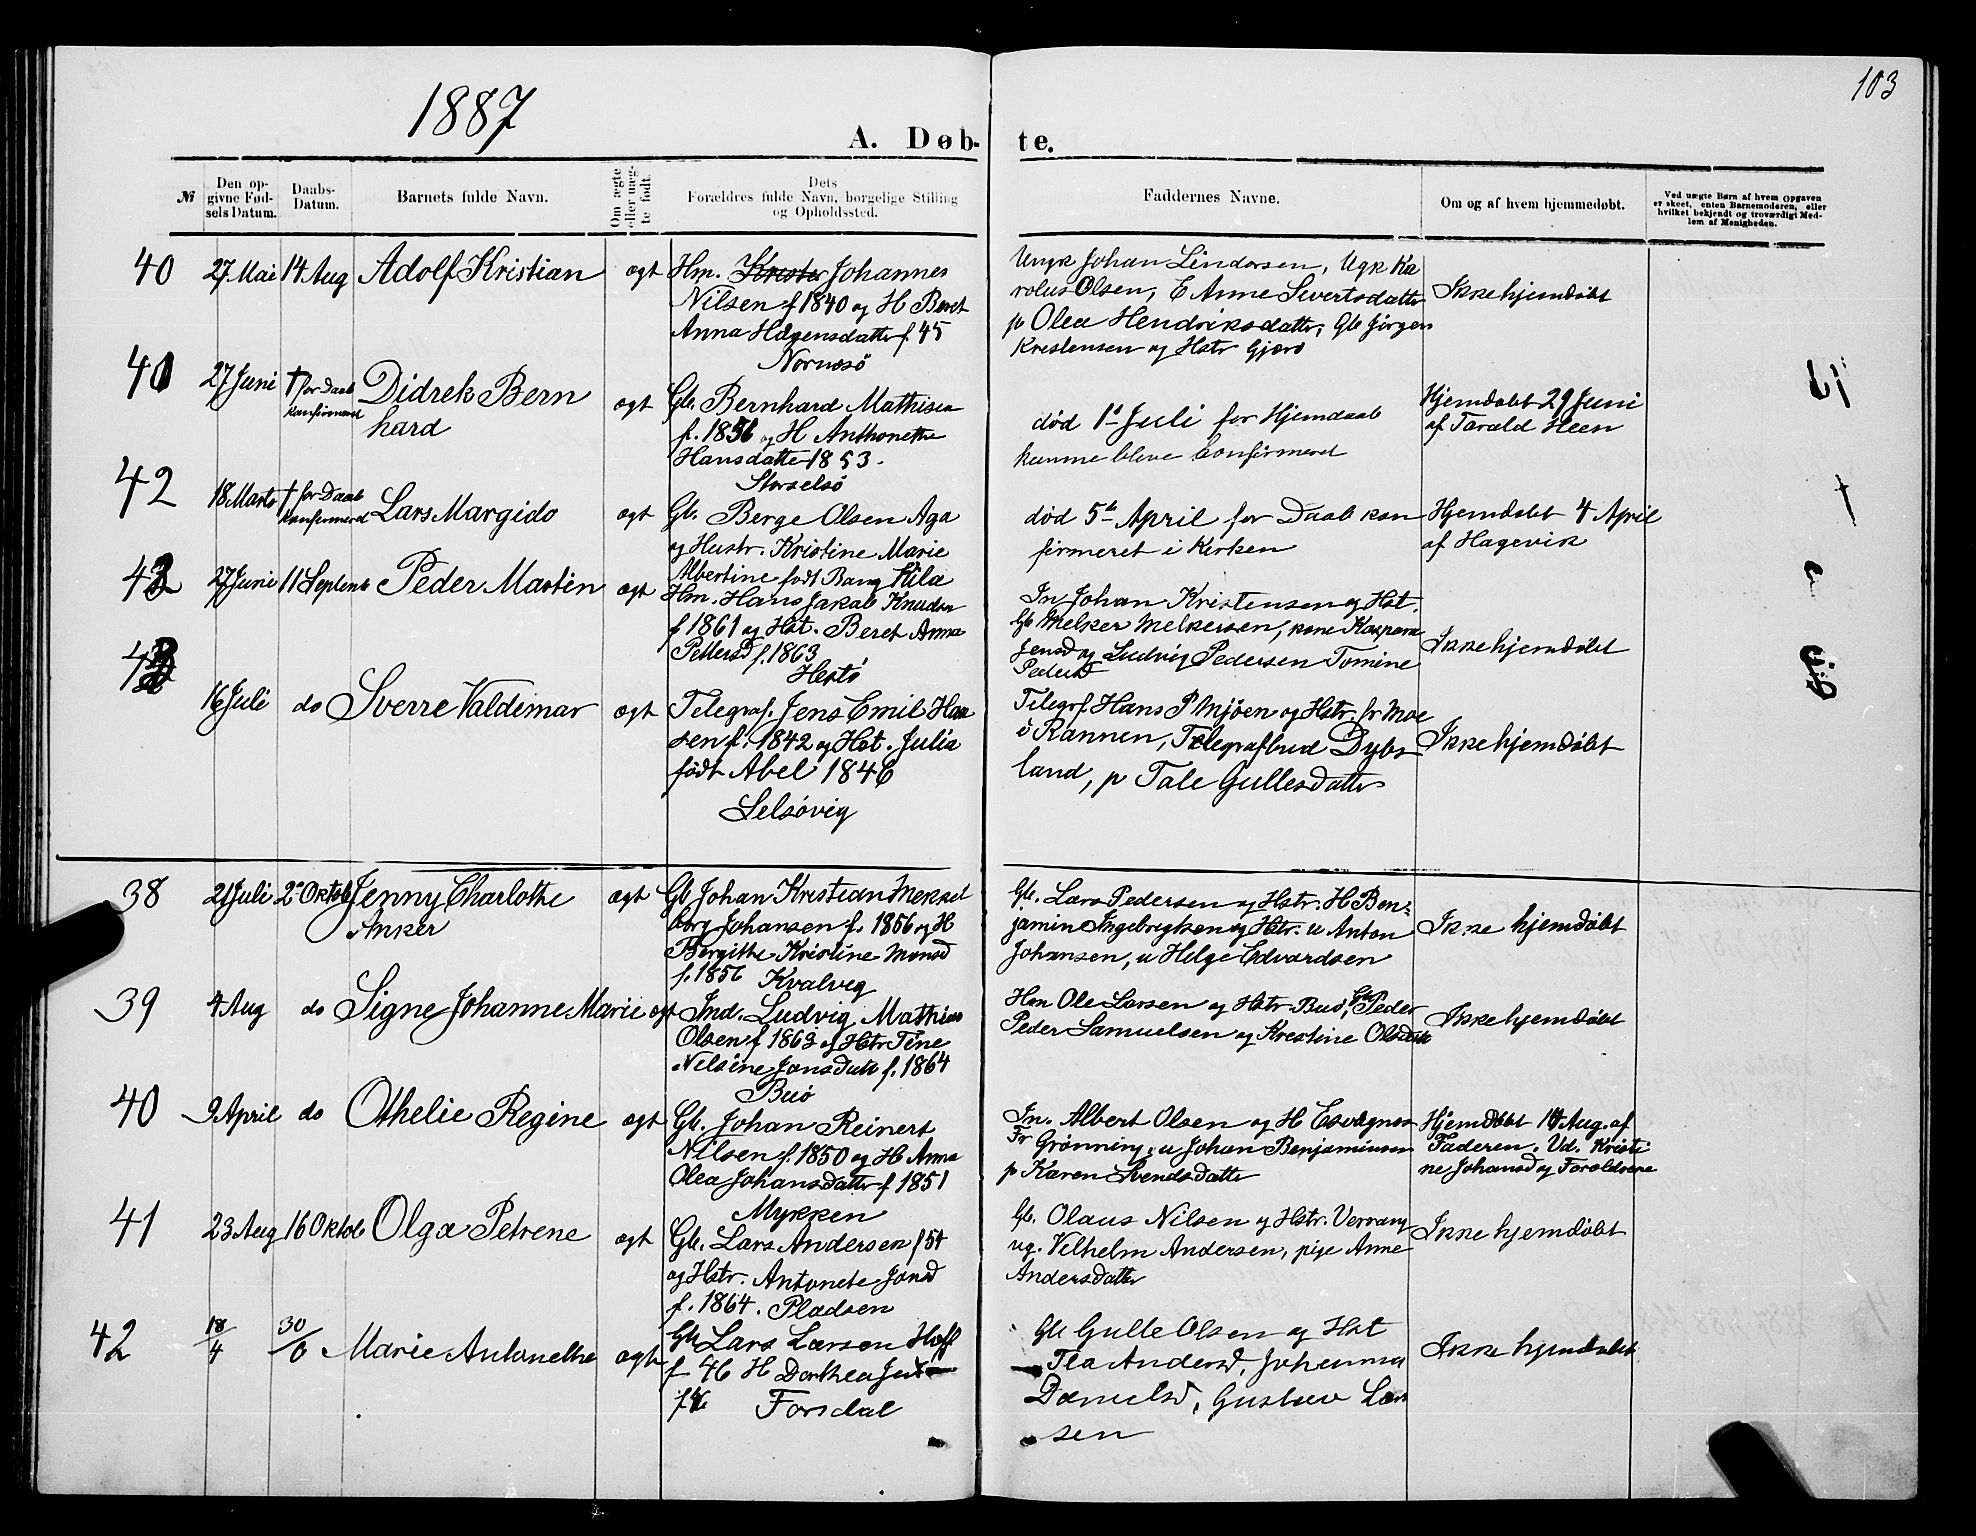 1887
103
A. Døbte.
№
Den opgivne Fødsels Datum.
Daabs-Datum.
Barnets fulde Navn.
Om ægte eller uægte født.
Dets Forældres fulde Navn, borgelige Stilling og Opholdssted.
Faddernes Navne.
Om og af hvem hjemmedøbt.
Ved uægte Børn af hvem Opgaven er skeet, enten Barnemoderen, eller hvilket bekjendt og troværdigt Medlem af Menigheden.
40 27 Mai 14 Aug Adolf Kristian ægt
Hm. Johannes
Nilsen f. 1840 og H Beret
Anna Hagensdatter f. 45
Nornesö
Ungk Johan Lindorsen, Ugk Ka
rolus Olsen, E Anne Sivertsdatter
p Olea Hendriksdatter, Gb Jörgen
Kristensen og Hstr Gjerö
Ikke hjemdöbt
27 Juni † før Daab
konfirmered
Didrek Bern
hard
ægt
Gb. Bernhard Mathisen
f. 1856 og H Anthonette
Hansdatter 1853.
Storselsö
död 1ste Juli før Hjemdaab
kunne blive Confirmeret
Hjemdöbt 29 Juni
af Tarald Heen
42 18 Marts † før Daab
konfirmered
Lars Margido ægt
Gb. Berge Olsen Aga
og Hustr. Kristine Marie
Albertine født Bang Kila
död 5te April før Daab kon
firmeret i Kirken
Hjemdøbt 4 April
af Hagevik
27 Juni 11 Septemb Peder Martin ægt
Hm. Hans Jakob Knudsen
f 1861 og Hst. Beret Anna
Pettersd f. 1863
Hestö
In Johan Kristensen og Hst.
Gb Melker Melkersen, kone Kaspara
Jensd og Ludvig Pedersen Tomine
Pedersd
Ikke hjemdöbt
16 Juli do Sverre Valdemar ægt
Telegraf. Jens Emil Han
sen f. 1842 og Hst. Julia
født Abel 1846
Selsövig
Telegrf. Hans P Mjöen og Hstr. fr Moe
i Rannen, Telegrafbud Dybs
land, p Tale Gullesdatter
Ikke hjemdöbt
38 21 Juli 2den Oktob Jenny Charlothe
Anker
ægt
Gb Johan Kristian Mekkel
borg Johansen f. 1856 og H
Bergithe Kristine Monsd
f. 1856 Kvalvig
Gb. Lars Pedersen og Hstr. H Ben-
jamin Ingebrigtsen og Hstr. u Anton
Johansen, u Helge Edvardsen
Ikke hjemdöbt
39 4 Aug do Signe Johanne Marie ægt
Ind. Ludvig Mathias
Olsen f 1863 og Hstr Tine
Nelsine Jonsdatt f. 1864
Buö
Hm Ole Larsen og Hstr. Buö, Gb Peder
Peder Samuelsen og Krestine Olsdatt
Ikke hjemdöbt
40 9 April do Othelie Regine ægt
Gb. Johan Reinert
Nilsen f. 1850 og H Anna
Olea Johansdatter f 1851
Mykken
In. Albert Olsen og H Esvægnes
Fr Grönning, u Johan Benjaminsen
p Karen Svendsdatter
Hjemdöbt 14 Aug. af
Faderen. Vd. Kristi
ne Johansd og Forældrene
41 23 Aug 16 Oktob Olga Petrene ægt
Gb. Lars Andersen f 54
og Hstr. Antonete Jonsd
f. 1864. Pladsen
Gb. Olaus Nilsen og Hstr. Værang
ug. Vilhelm Andersen, pige Anne
Andersdatter
Ikke hjemdöbt
42 18/4 30/6 Marie Antonethe ægt
Gb Lars Larsen Hoff
f 46 H Dorthea
Forsdal
Gb Gulle Olsen og Hst
Andersd, Johanna
Danielsd, Gustav Lar
sen
Ikke hjemdöbt